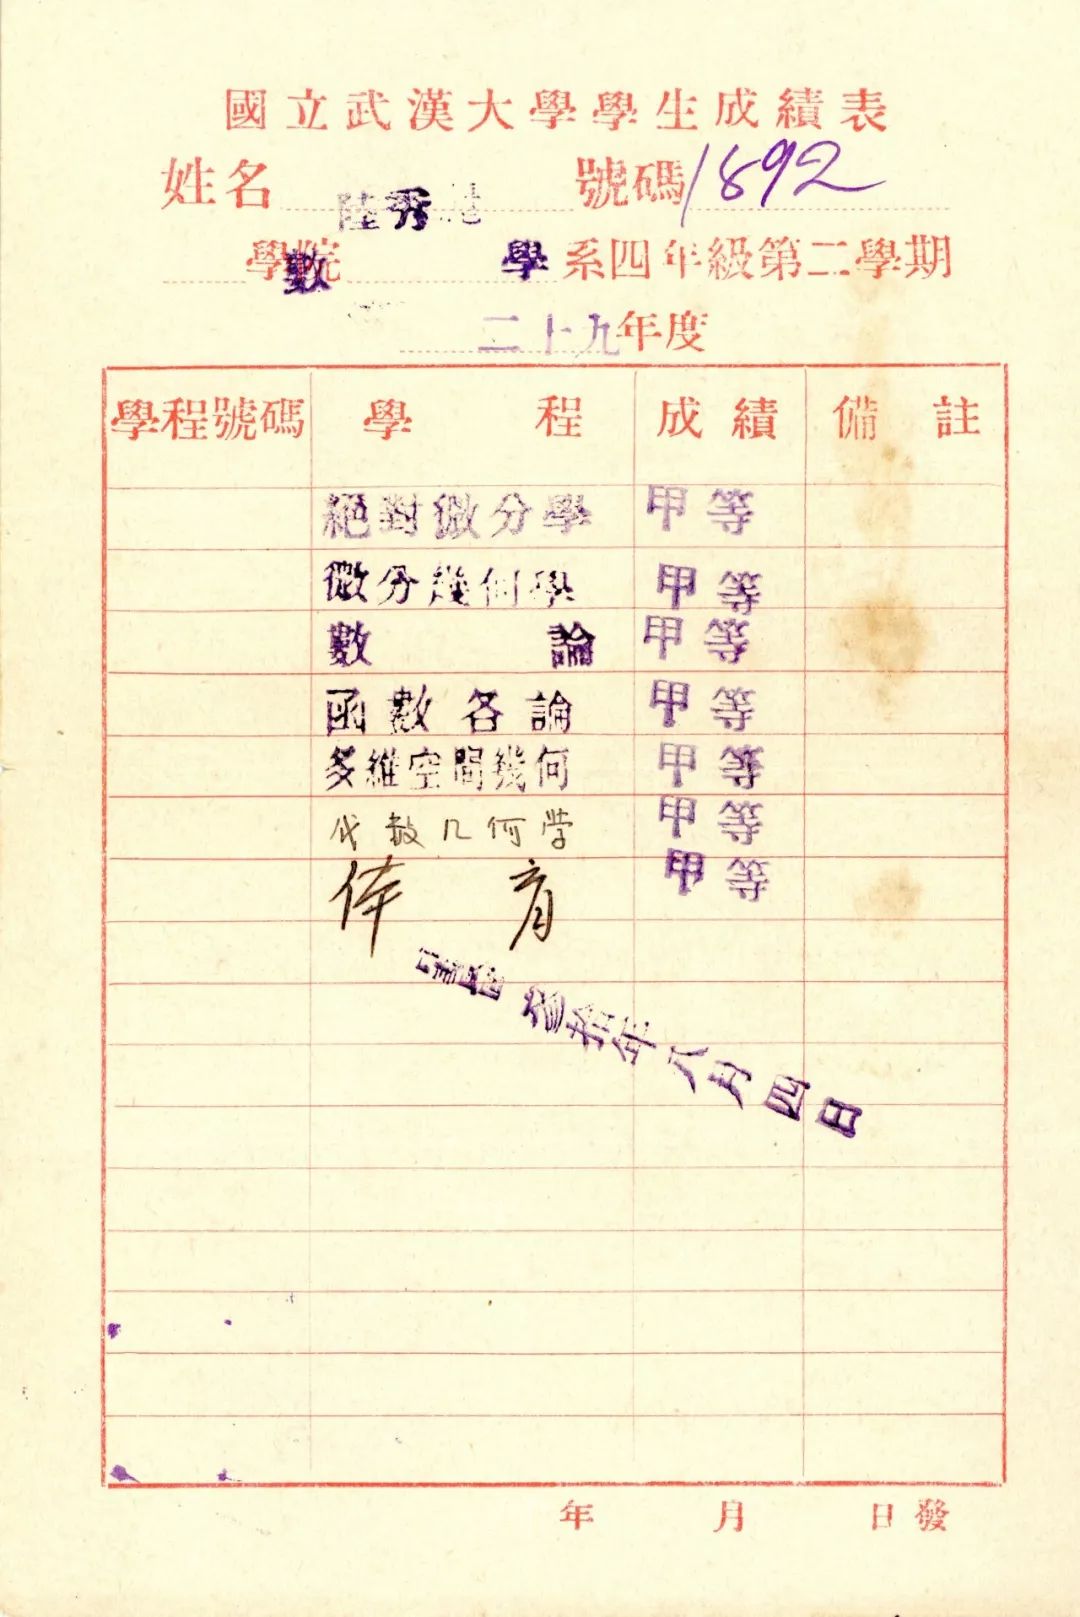 國立武漢大學學生成績表
姓名 陸秀 號碼 1892
學院 數學系四年級第二學期
二十九年度
學程號碼 學程 成績 備註
絕對微分學 甲等
微分幾何學 甲等
數論 甲等
函數各論 甲等
多維空間幾何 甲等
代数几何学 甲等
体育 甲等
叁拾年八月四日
年 月 日發